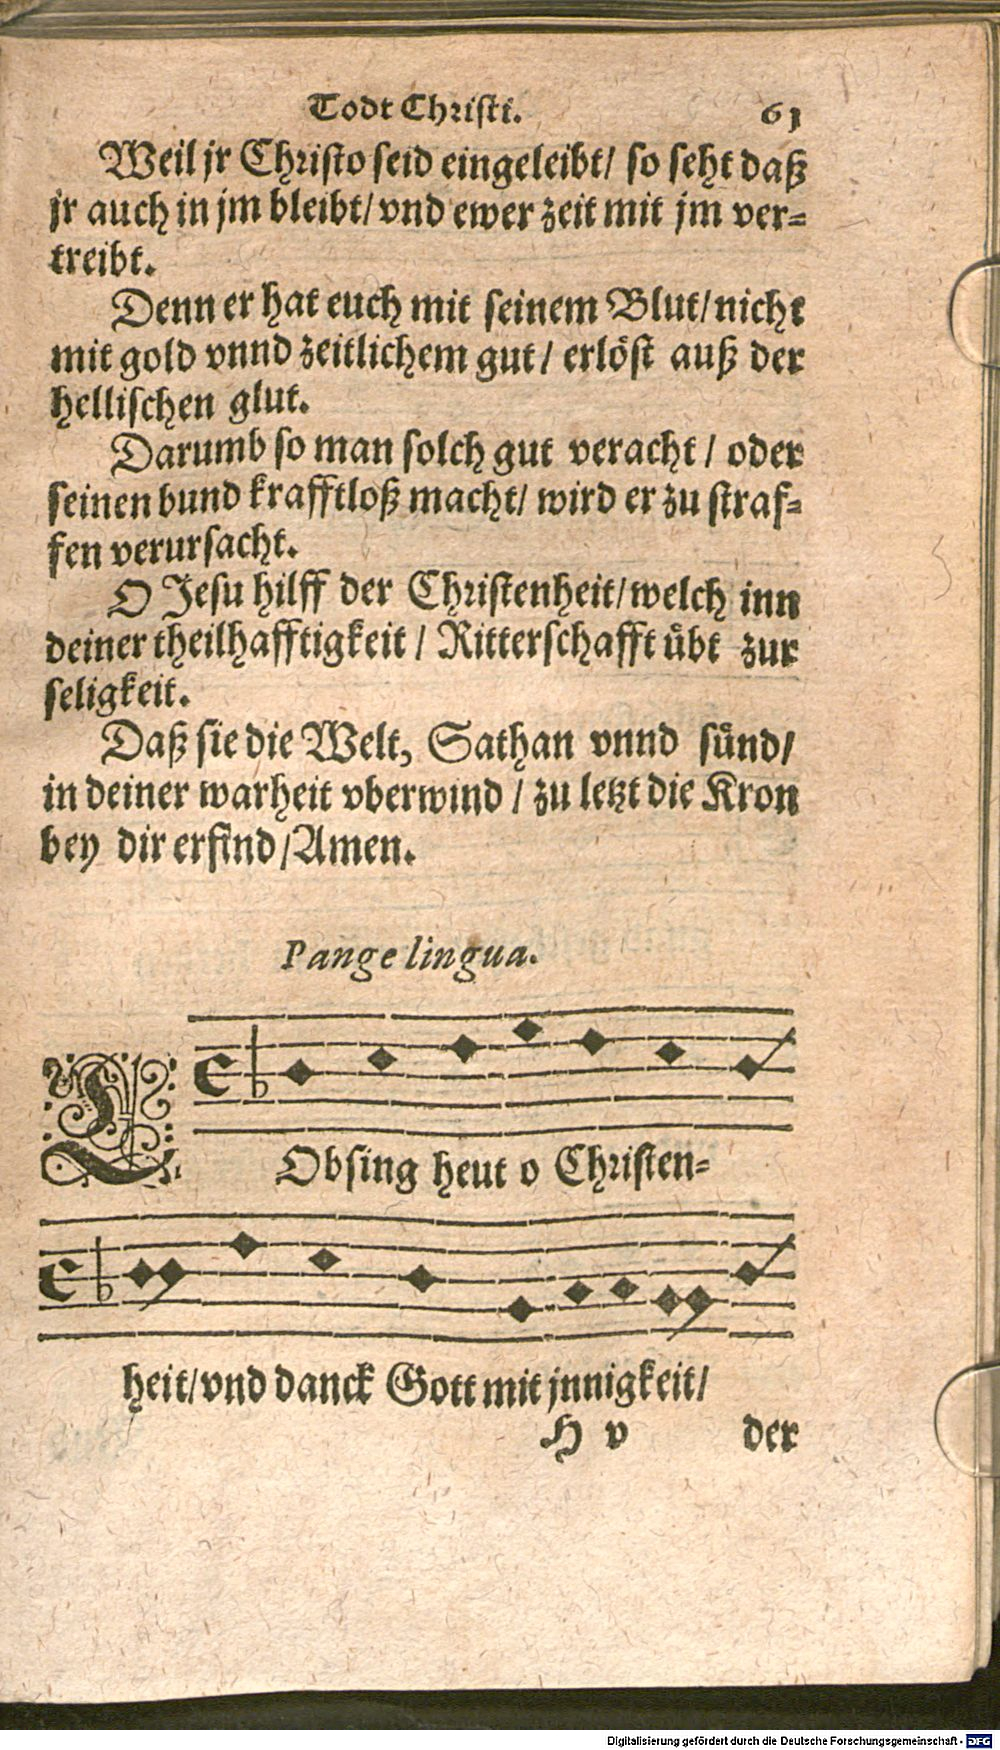 Todt Christi. 61
Weil jr Christo seid eingeleibt/ so seht daß
jr auch in jm bleibt/ vnd ewer zeit mit jm ver⸗
treibt.
Denn er hat euch mit seinem Blut/ nicht
mit gold vnnd zeitlichem gut/ erlöst auß der
hellischen glut.
Darumb so man solch gut veracht/ oder
seinen bund krafftloß macht/ wird er zu straf⸗
fen verursacht.
O Jesu hilff der Christenheit/ welch inn
deiner theilhafftigkeit/ Ritterschafft übt zur
seligkeit.
Daß sie die Welt, Sathan vnnd sünd/
in deiner warheit vberwind/ zu letzt die Kron
bey dir erfind/ Amen.
Pange lingua.
LObsing heut o Christen⸗
heit/ vnd danck Gott mit jnnigkeit/
H v der
Digitalisierung gefördert durch die Deutsche Forschungsgemeinschaft - DFG